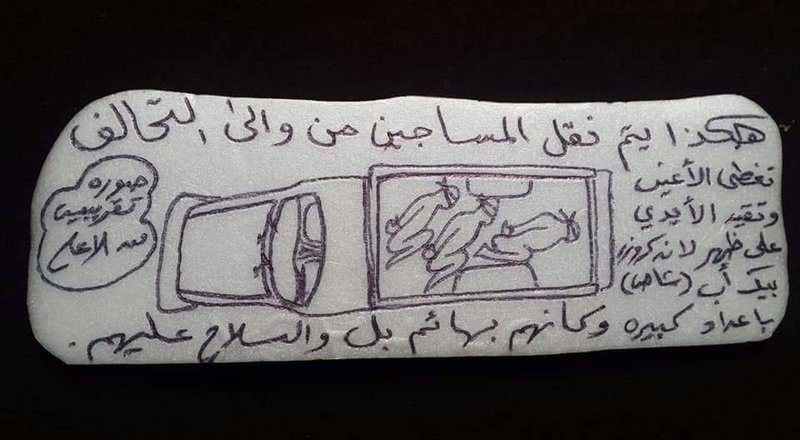 هكذا يتم نقل المساجين من والى التحالف
تغطى الأعين
وتقيد الأيدي
على ظهر لاندكروزر
بيك أب (شاص)
باعداد كبيره وكانهم بهائم بل والسلاح عليهم.
صوره
تقريبية
من الأعلى